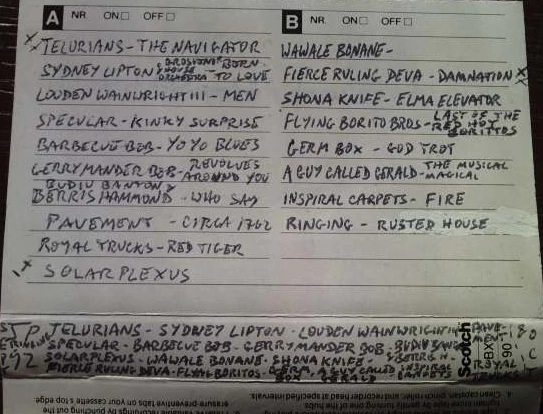 A NR. ON☐ OFF☐
TELURIANS - THE NAVIGATOR
SYDNEY LIPTON & GROSVENOR HOUSE ORCHESTRA - BORN TO LOVE
LOUDEN WAINWRIGHT III - MEN
SPECULAR - KINKY SURPRISE
BARBECUE BOB - YO YO BLUES
GERRYMANDER BOB - REVOLVES AROUND YOU
BUDIU BANTON &
BERRIS HAMMOND - WHO SAY
PAVEMENT - CIRCA 1762
ROYAL TRUCKS - RED TIGER
SOLAR PLEXUS
B NR. ON☐ OFF☐
WAWALE BONANE -
FIERCE RULING DEVA - DAMNATION
SHONA KNIFE - ELMA ELEVATOR
FLYING BORITO BROS - LAST OF THE RED HOT BORITTOS
GERM BOX - GOD TROT
A GUY CALLED GERALD - THE MUSICAL MAGICAL
INSPIRAL CARPETS - FIRE
RINGING - RUSTED HOUSE
TELURIANS - SYDNEY LIPTON - LOUDEN WAINWRIGHT III
SPECULAR - BARBECUE BOB - GERRYMANDER BOB -
SOLAR PLEXUS - WAWALE BONANE - SHONA KNIFE -
FIERCE RULING DEVA - FLYING BORITOS - GERM BOX, A GUY CALLED GERALD INSPIRAL CARPETS
ROYAL
Scotch
BX
90